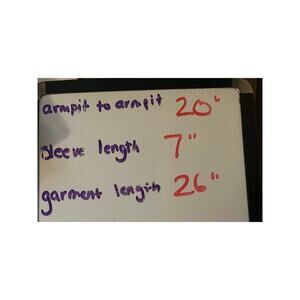 armpit to armpit 20"
sleeve length 7"
garment length 26"